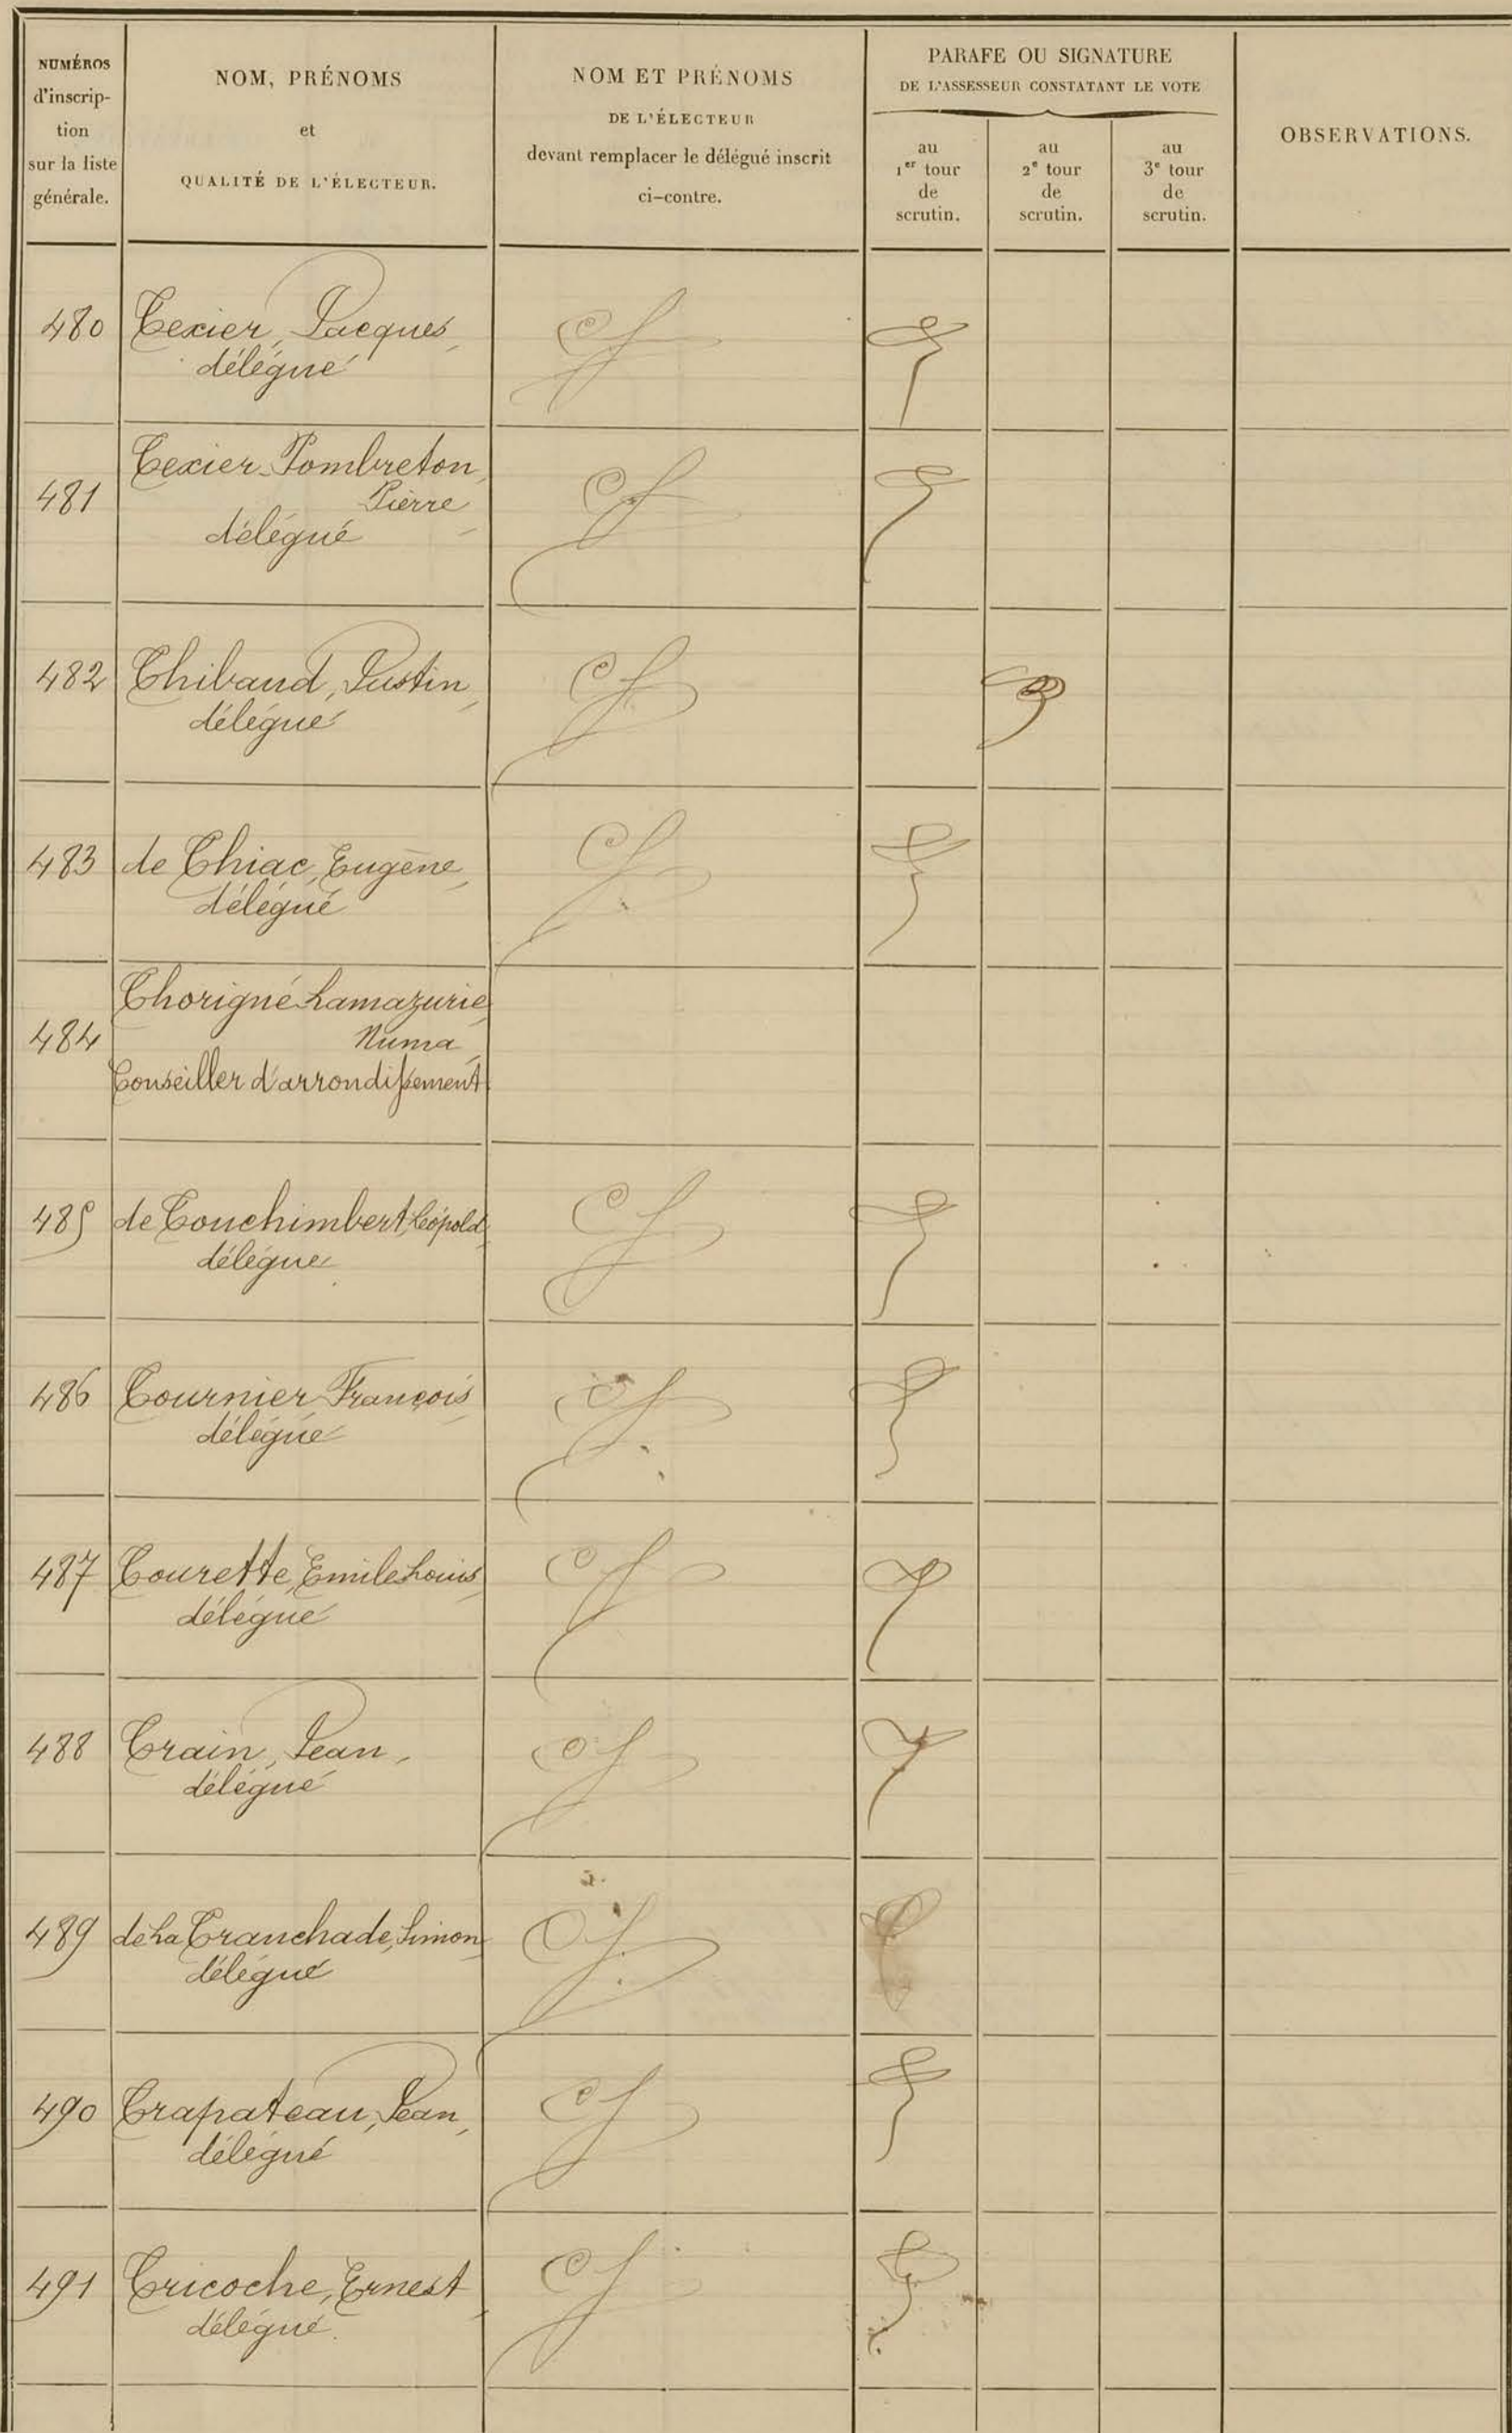 NUMÉROS
d'inscrip-
tion
sur la liste
générale.
NOM, PRÉNOMS
et
QUALITÉ DE L'ÉLECTEUR.
NOM ET PRÉNOMS
DE L'ÉLECTEUR
devant remplacer le délégué inscrit
ci-contre.
PARAFE OU SIGNATURE
DE L'ASSESSEUR CONSTATANT LE VOTE
au
1er tour
de
scrutin.
au
2e tour
de
scrutin.
au
3e tour
de
scrutin.
OBSERVATIONS.
480 Texier, Jacques,
délégué
Texier-Pombreton,
481 Pierre
délégué
482 Thibaud, Justin,
délégué
483 de Thiac, Eugène,
délégué
Thorigné Lamazurie,
484 Numa
Conseiller d'arrondissement
485 de Touchimbert, Léopold,
délégué
486 Tournier François,
délégué
487 Tourette, Emile Louis,
délégué
488 Train, Jean,
délégué
489 de La Tranchade, Simon,
délégué
490 Trapateau, Jean,
délégué
491 Tricoche, Ernest,
délégué.